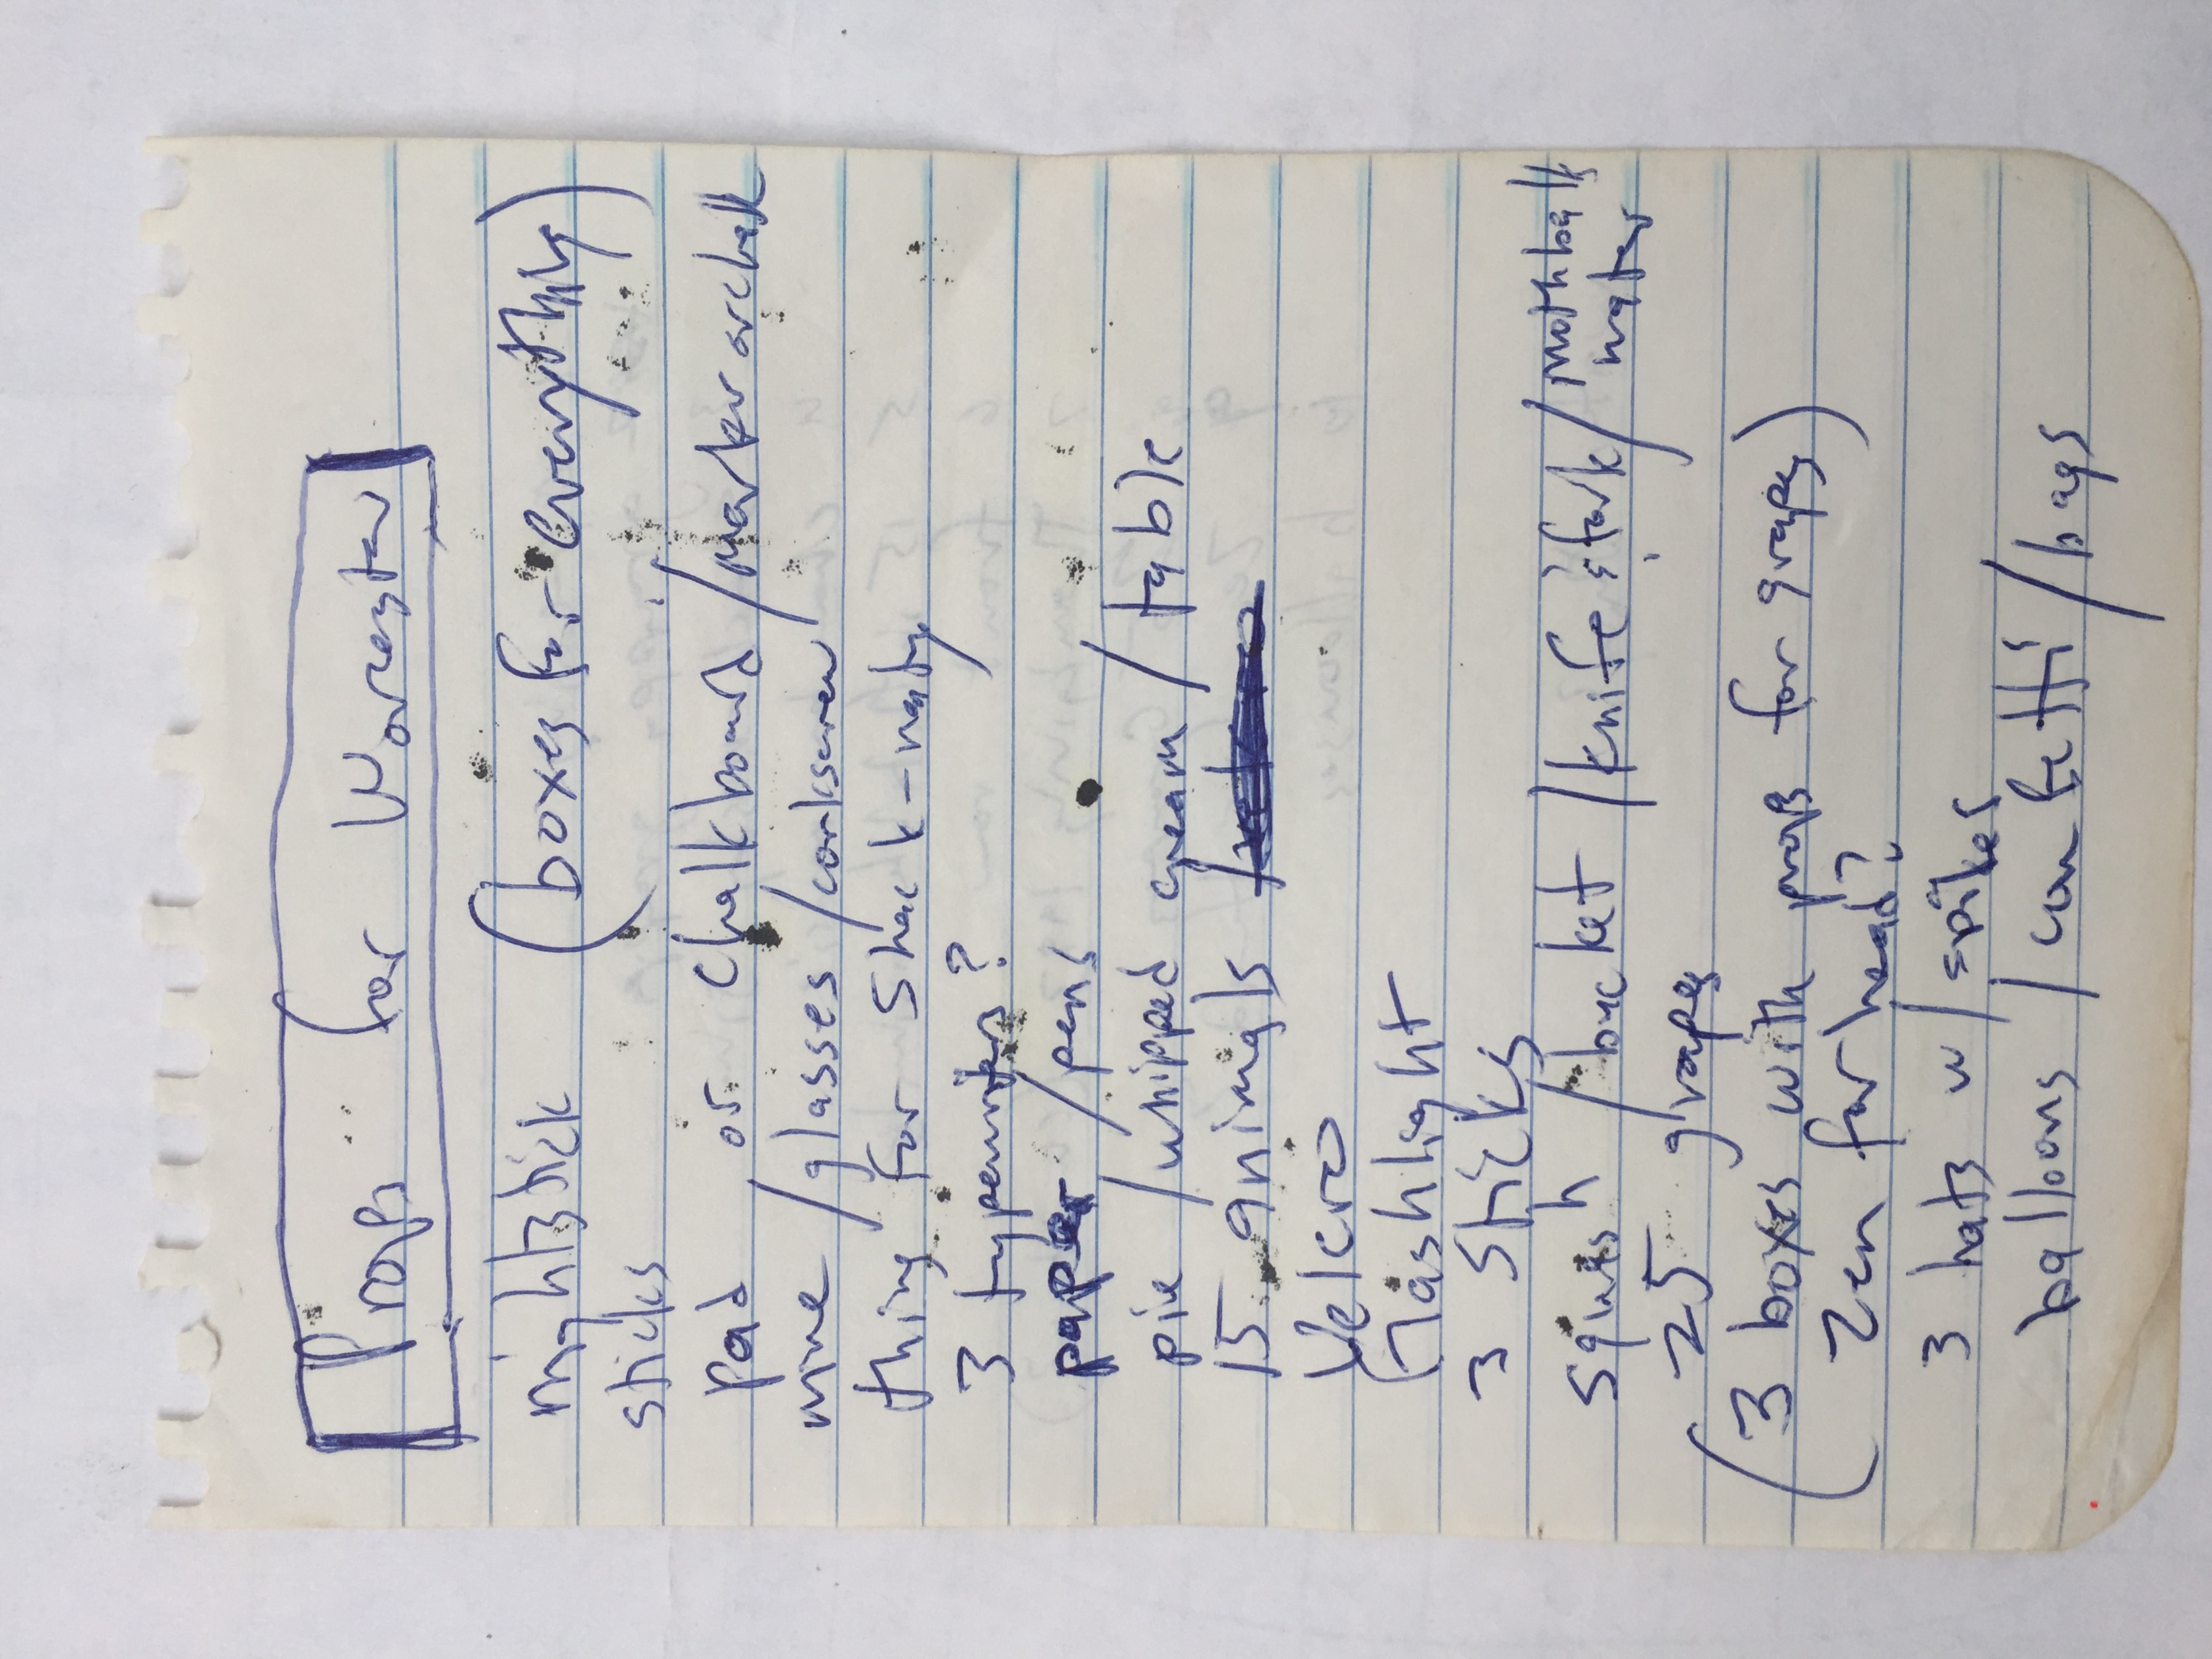 Props for Worcester
nightstick (boxes for everything)
sticks
pad or chalkboard/marker or chalk
wine/glasses/corkscrew
thing for Shack-nasty
3 typewriters?
paper/pens
pie/whipped cream/table
15 animals
Velcro
flashlight
3 sticks
squish/bucket/knife & fork/mothballs
water
25 grapes
(3 boxes with props for grapes)
Zen for head?
3 hats w/ spikes
balloons/confetti/bags